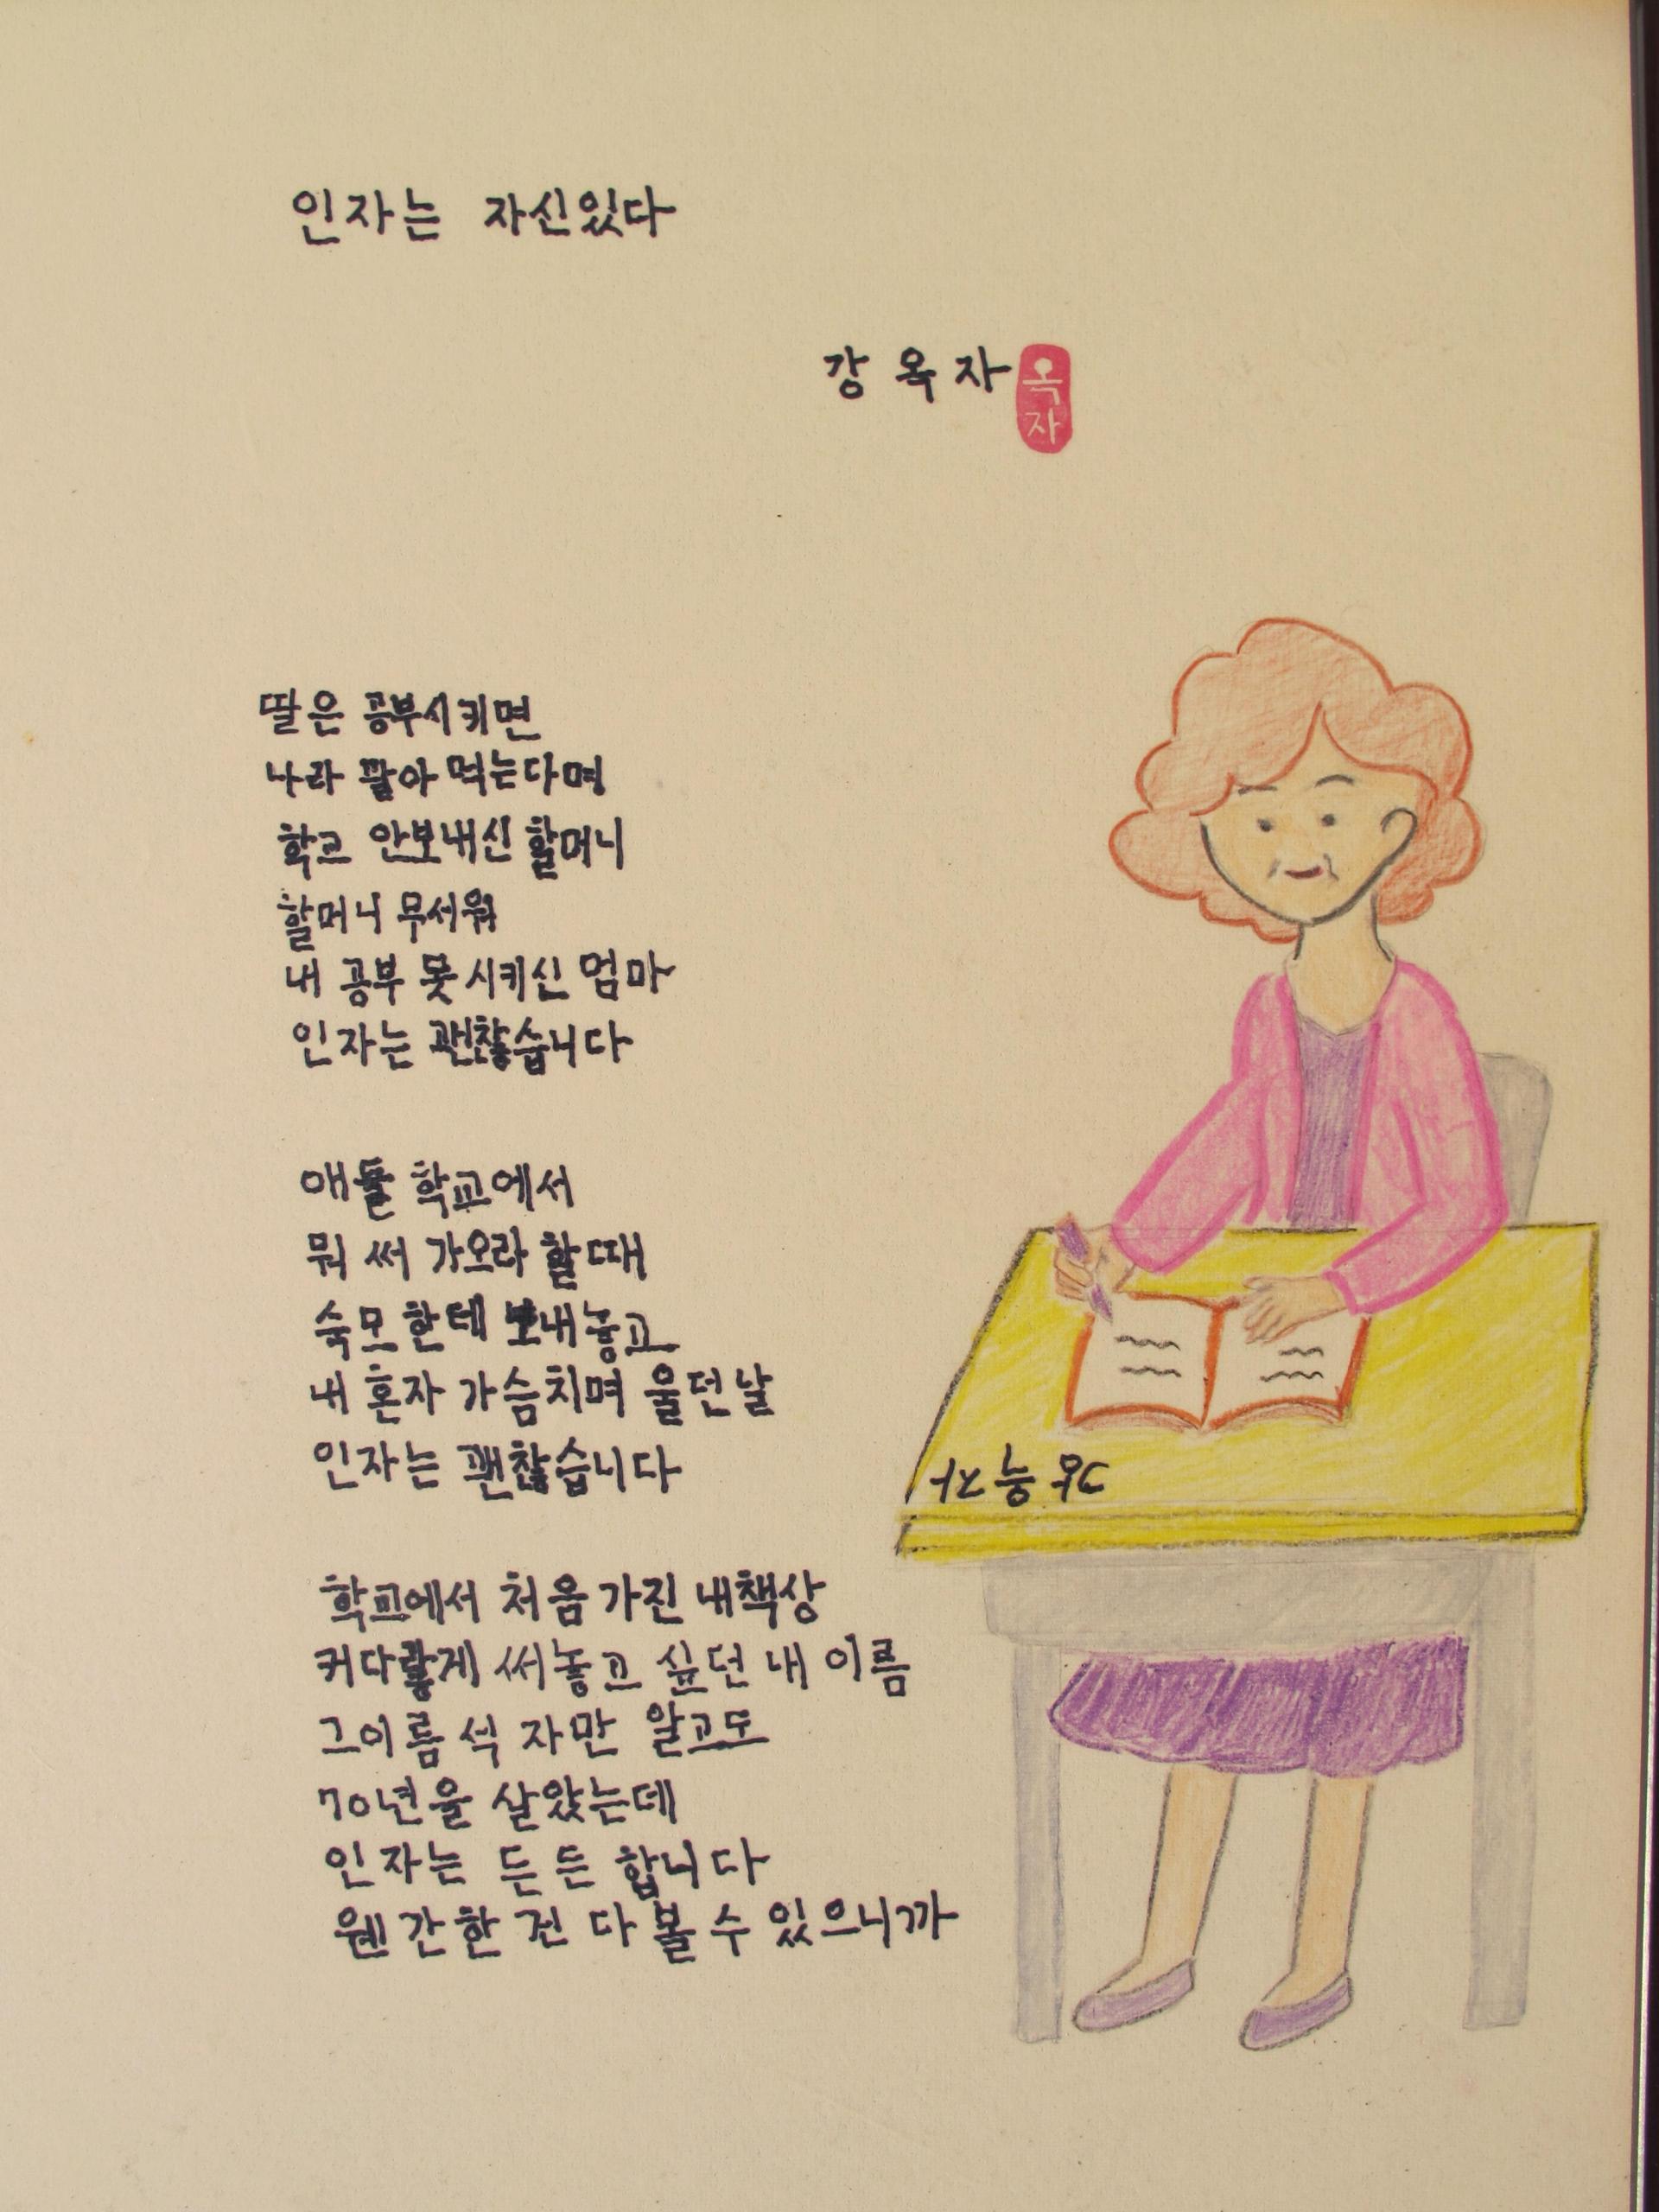 인자는 자신있다
강옥자
옥
자
딸은 공부시키면
나라 팔아 먹는다며
학교 안보내신 할머니
할머니 무서워
내 공부 못 시키신 엄마
인자는 괜찮습니다
애들 학교에서
뭐 써 가오라 할때
숙모 한테 보내놓고
내 혼자 가슴치며 울던날
인자는 괜찮습니다
학교에서 처음 가진 내책상
커다랗게 써놓고 싶던 내 이름
그이름 석 자만 알고도
70년을 살았는데
인자는 든든 합니다
웬간한 건 다 볼 수 있으니까